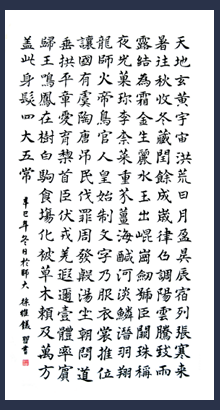 天地玄黃宇宙洪荒日月盈昃辰宿列張寒來
暑往秋收冬藏閏餘成歲律召調陽雲騰致雨
露結為霜金生麗水玉出崐崗劍號巨闕珠稱
夜光菓珍李柰菜重芥薑海鹹河淡鱗潛羽翔
龍師火帝鳥官人皇始制文字乃服衣裳推位
讓國有虞陶唐弔民伐罪周發殷湯坐朝問道
垂拱平章愛育黎首臣伏戎羌遐邇壹體率賓
歸王鳴鳳在樹白駒食場化被草木賴及萬方
蓋此身髮四大五常
辛巳年冬月於師大 徐維儀 習書